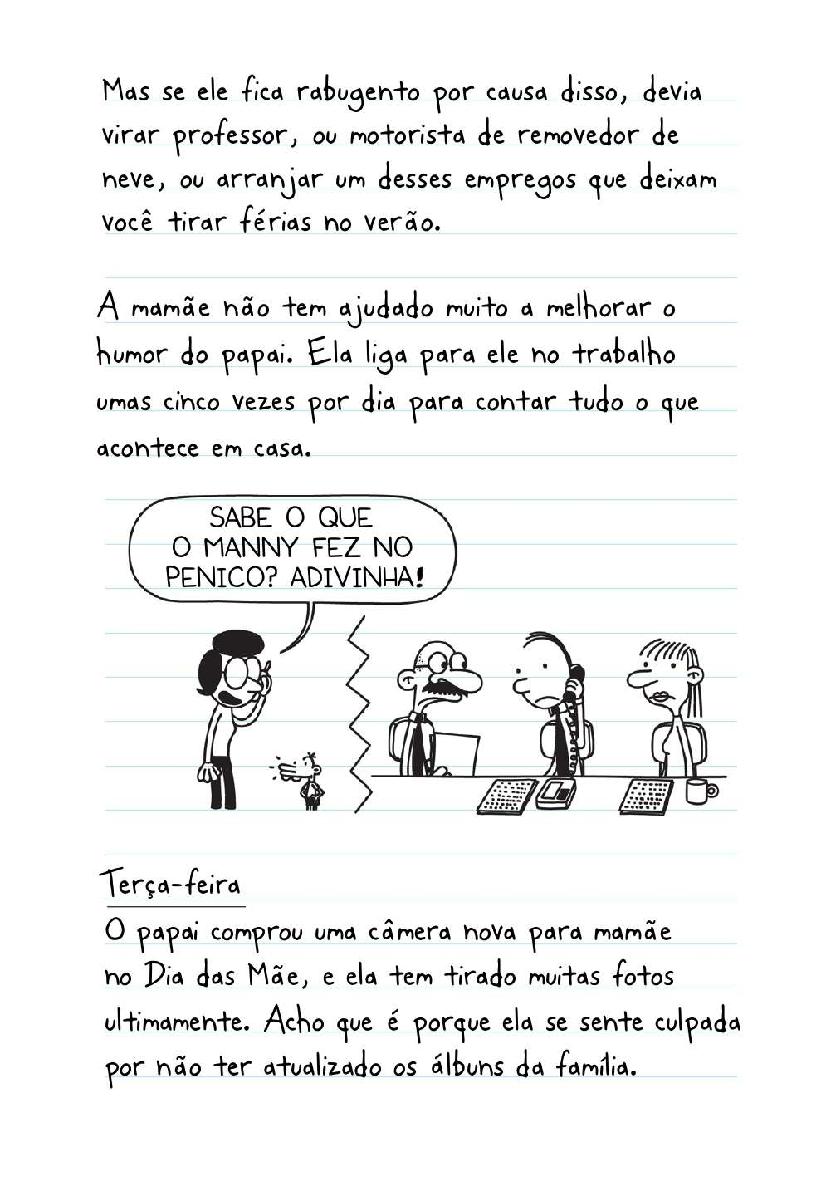 Mas se ele fica rabugento por causa disso, devia
virar professor, ou motorista de removedor de
neve, ou arranjar um desses empregos que deixam
você tirar férias no verão.
A mamãe não tem ajudado muito a melhorar o
humor do papai. Ela liga para ele no trabalho
umas cinco vezes por dia para contar tudo o que
acontece em casa.
SABE O QUE
O MANNY FEZ NO
PENICO? ADIVINHA!
Terça-feira
O papai comprou uma câmera nova para mamãe
no Dia das Mãe, e ela tem tirado muitas fotos
ultimamente. Acho que é porque ela se sente culpada
por não ter atualizado os álbuns da família.